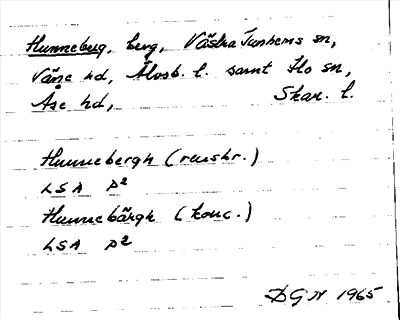 Hunneberg, berg, Västra Tunhems sn,
Väne hd, Älvsb. l. samt Flo sn,
Åse hd, Skar. l.
Hunnebergh (renskr.)
LSA P2
Hunnebärgh (konc.)
LSA P2
DGN 1965